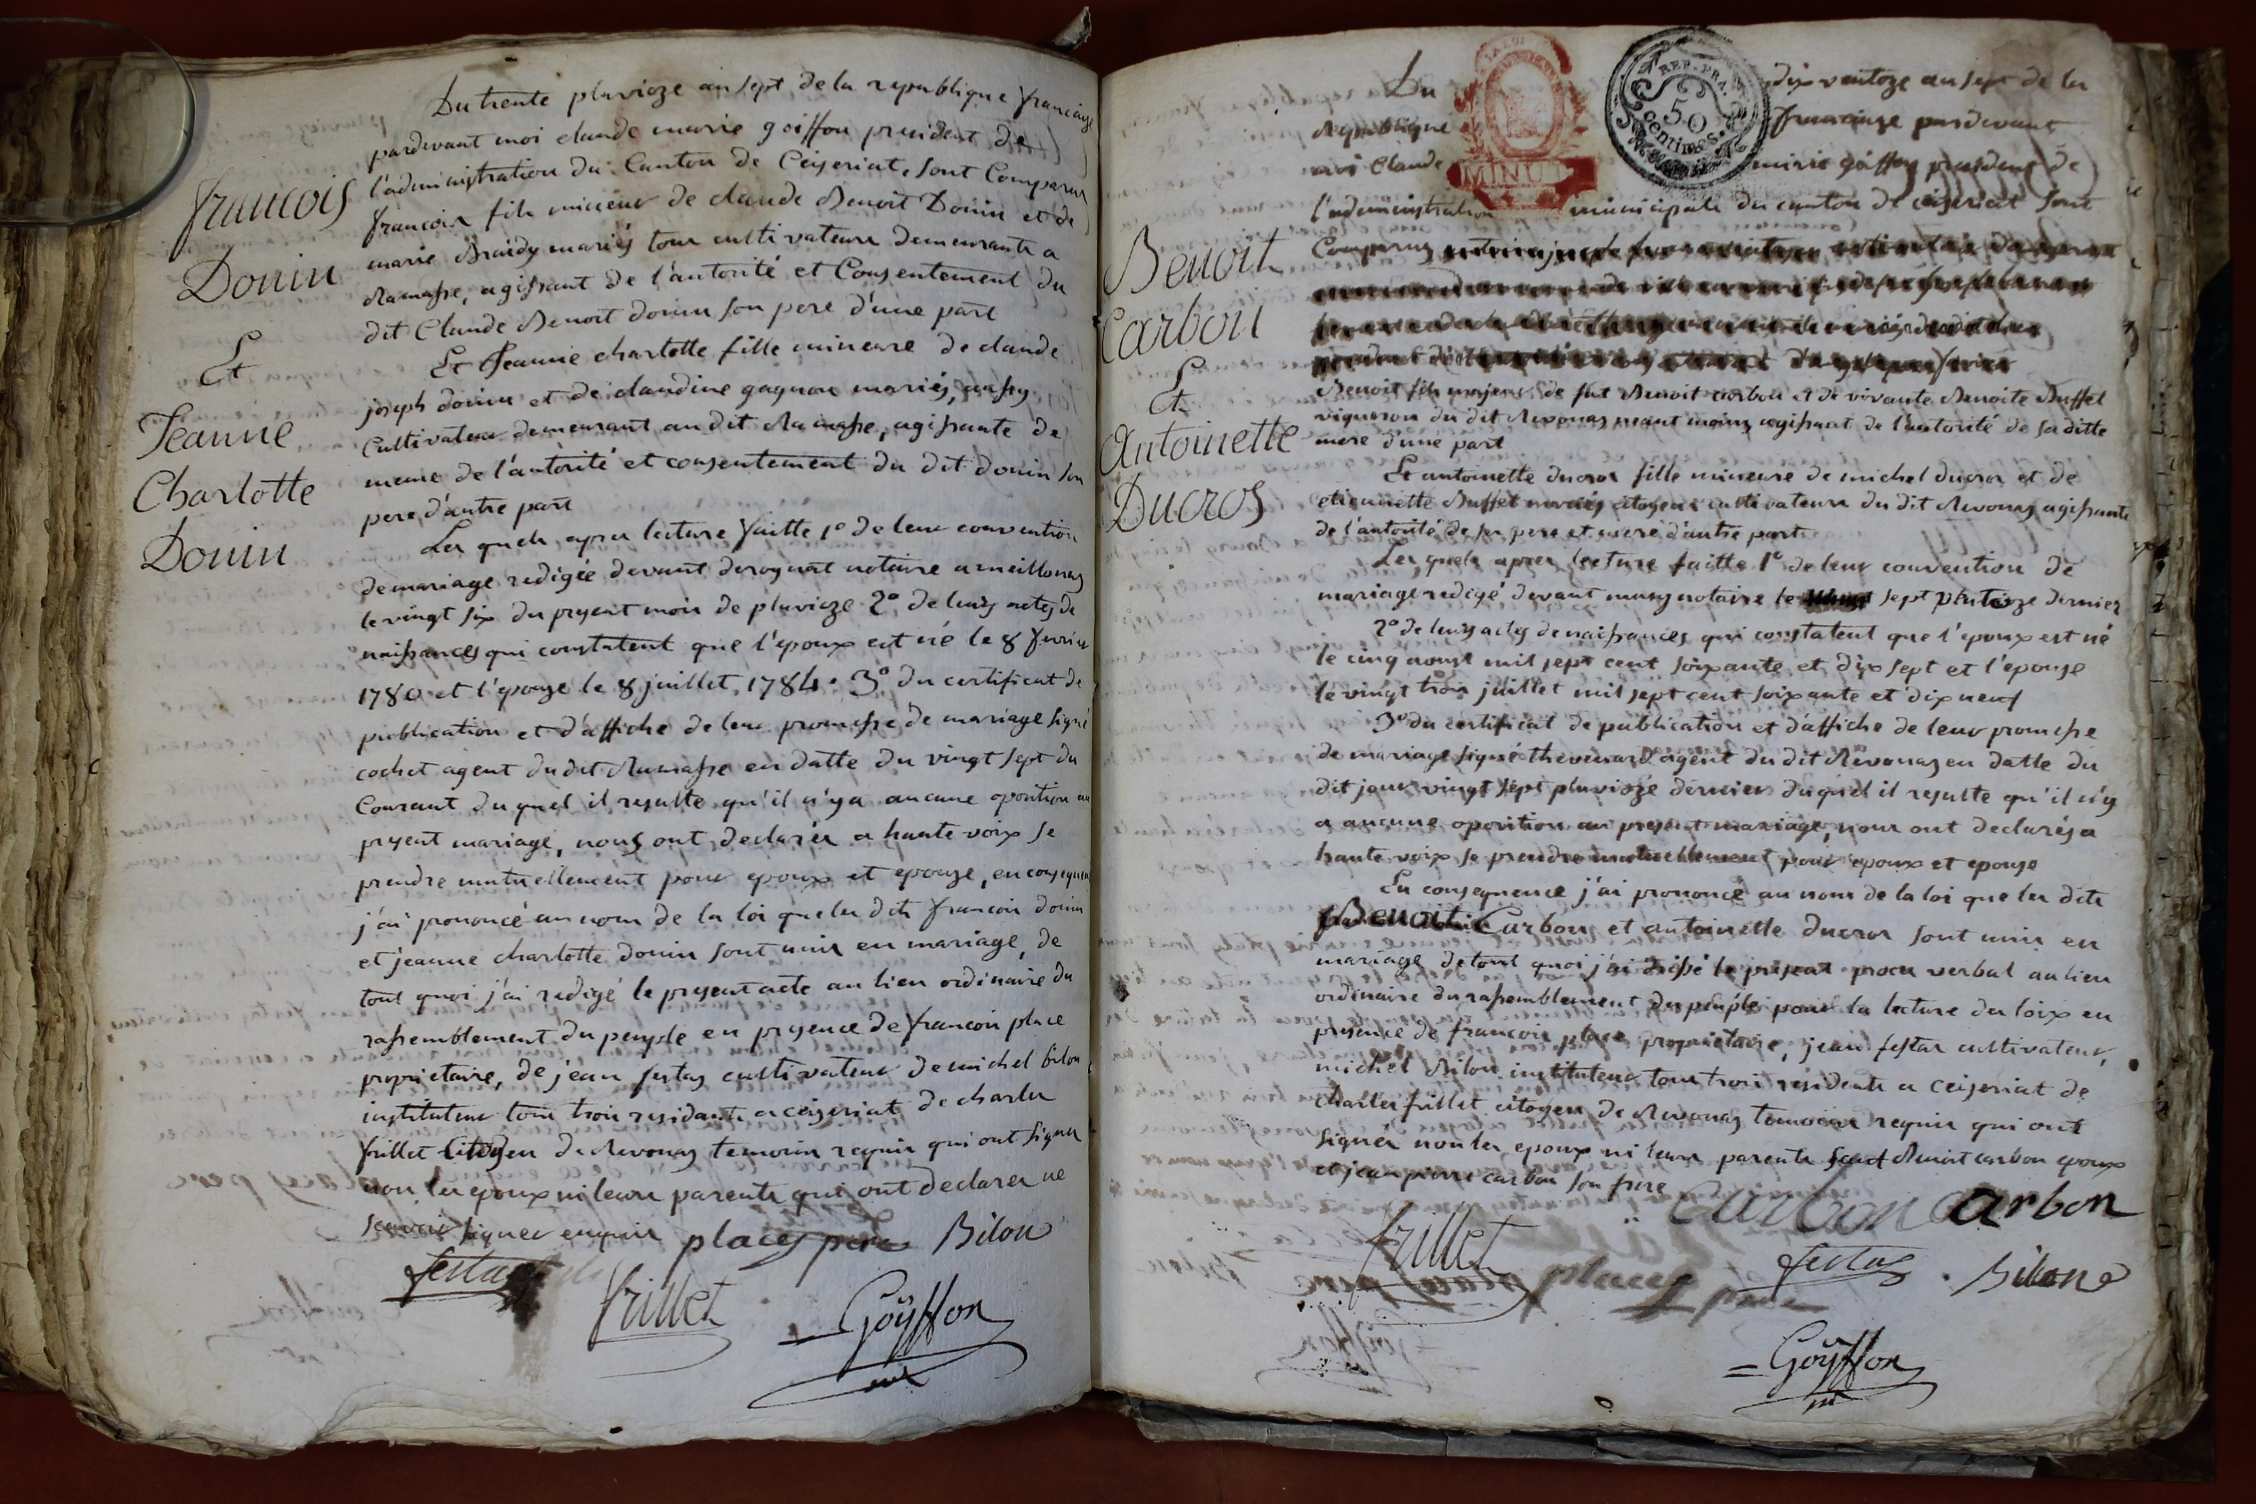 Du trente pluvioze an sept de la republique francaize
pardevant moi claude marie goiffon president de
l'administration du Canton de Ceizeriat, sont Comparus
francois fils mineur de claude Benoit Donin et de
marie Braidy mariés tous cultivateurs demeurants a
Ramasse, agissant de l'autorité et Consentement du
dit Claude Benoit donin son pere d'une part
Et Jeanne charlotte fille mineure de claude
joseph donin et de claudine gagnon mariés, aussy
Cultivateurs demeurant au dit Ramasse, agissante de
meme de l'autorité et consentement du dit donin son
pere, d'autre part
Les quels apres lecture faitte 1º de leur convention
de mariage redigée devant notaire a meillonas
le vingt six du present mois de pluvioze 2º de leurs actes de
naissances qui constatent que l'epoux est né le 8 fevrier
1780 et l'epouze le 8 juillet 1784. 3º du certificat de
publication et d'affiche de leur promesse de mariage signé
cochet agent du dit Ramasse en datte du vingt sept du
Courant du quel il resulte qu'il n'y a aucune oposition au
present mariage, nous ont declarés a haute voix se
prendre mutuellement pour epoux et epouze, en consequence
j'ai prononcé au nom de la loi que les dits francois donin
et jeanne charlotte donin sont unis en mariage, de
tout quoi j'ai redigé le present acte au lieu ordinaire du
rassemblement du peuple en presence de francois place
proprietaire, de jean festas cultivateur de michel bilon
instituteur tous trois residants a ceizeriat de charles
frillet citoyen de Revonas temoins requis qui ont signés
non les epoux ni leurs parents qui ont declarer ne
scavoir signer enquis places pere Bilon
festas
frillet
Goÿffon
francois
Donin
Et
Jeanne
Charlotte
Donin
Du dix ventoze an sept de la
Republique francaize pardevant
moi Claude marie goiffon president de
l'administration municipale du canton de ceizeriat sont
Comparus
Benoit fils majeur de fut Benoit carbon et de vivante Benoite Buffet
vigneron du dit Revonas neant moins agissant de l'autorité de sa ditte
mere d'une part
Et antoinette ducros fille mineure de michel ducros et de
etiennette Buffet mariés citoyens cultivateurs du dit Revonas agissante
de l'autorité de ses pere et mere d'autre part
Les quels apres lecture faitte 1º de leur convention de
mariage redigé devant notaire le sept pluvioze dernier
2º de leurs actes de naissances qui constatent que l'epoux est né
le cinq aoust mil sept cent soixante et dix sept et l'epouze
le vingt trois juillet mil sept cent soixante et dix neuf
3º du certificat de publication et d'affiche de leur promesse
de mariage signé thevenard agent du dit Revonas en datte du
dit jour vingt sept pluvioze dernier duquel il resulte qu'il n'y
a aucune oposition au present mariage, nous ont declarés a
haute voix se prendre mutuellement pour epoux et epouze
En consequence j'ai prononcé au nom de la loi que les dits
Benoit Carbon et antoinette ducros sont unis en
mariage de tout quoi j'ai dressé le present proces verbal au lieu
ordinaire du rassemblement du peuple pour la lecture des loix en
presence de francois place proprietaire, jean festas cultivateur,
michel Bilon instituteur tous trois residents a ceizeriat de
charles frillet citoyen de Revonas temoins requis qui ont
signés non les epoux ni leurs parents sauf Benoit carbon epoux
et jean pierre carbon son frere
Carbon Carbon
frillet
places pere
festas
Bilon
Goÿffon
Benoit
Carbon
Et
Antoinette
Ducros
REP. FRA.
50
centimes.
MINUT